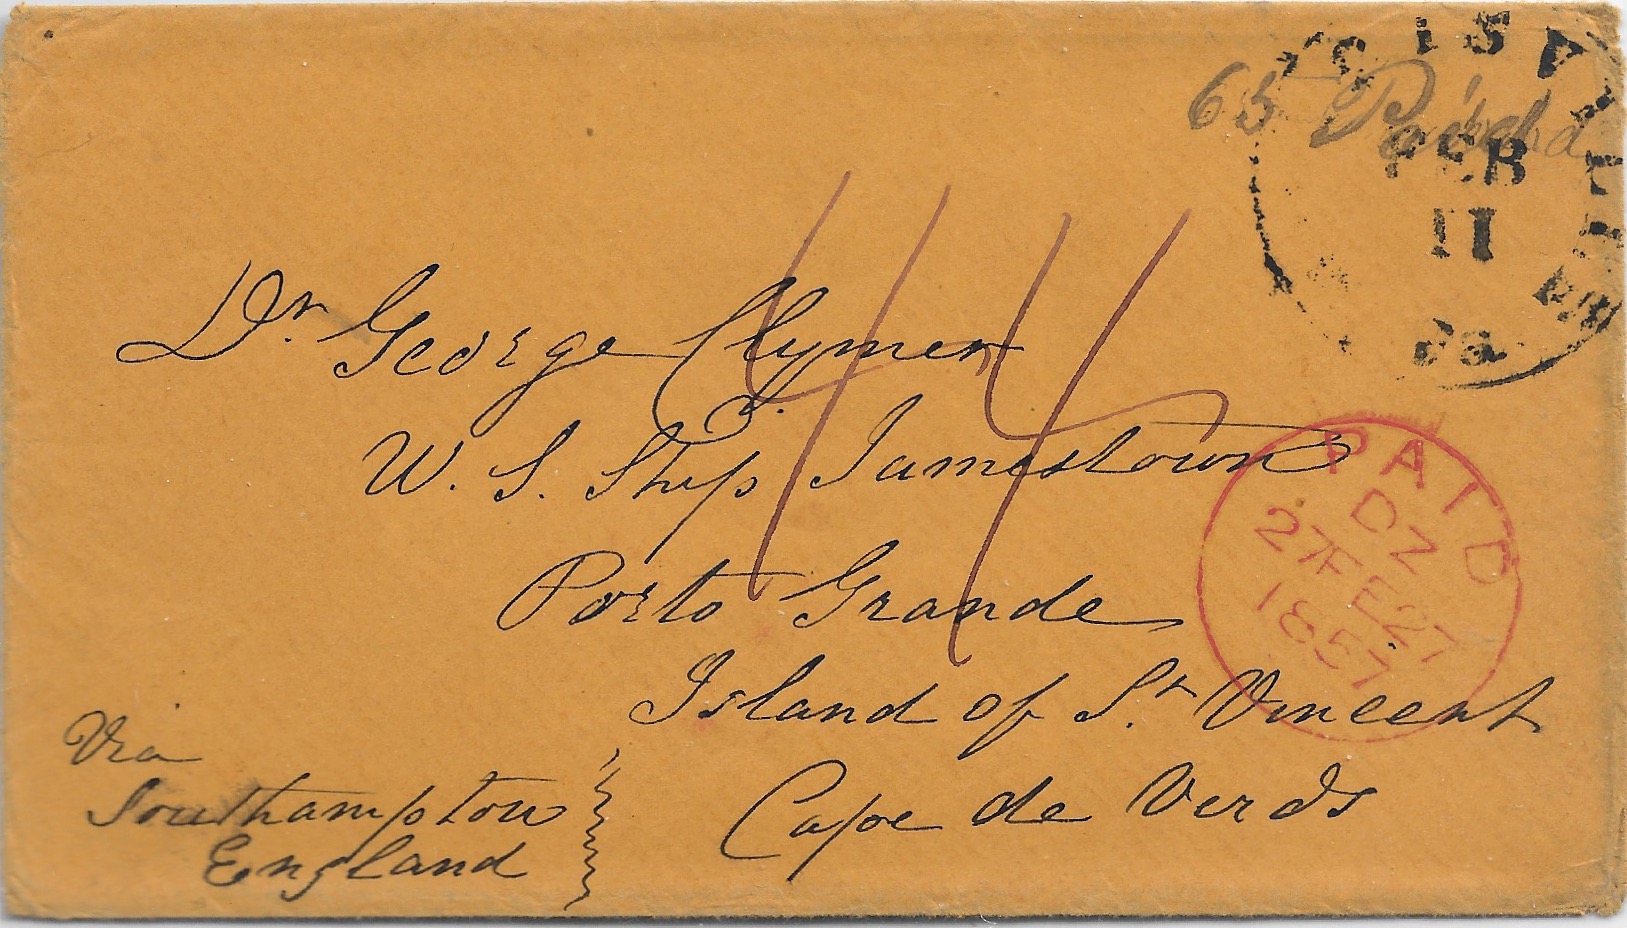 65 Paid
FEB
11
Pa.
44
Dr. George Clymer
U. S. Ship Jamestown
Porto Grande
Island of St. Vincent
Cape de Verds
Via
Southampton
England
PAID
DZ
27FE27
1857